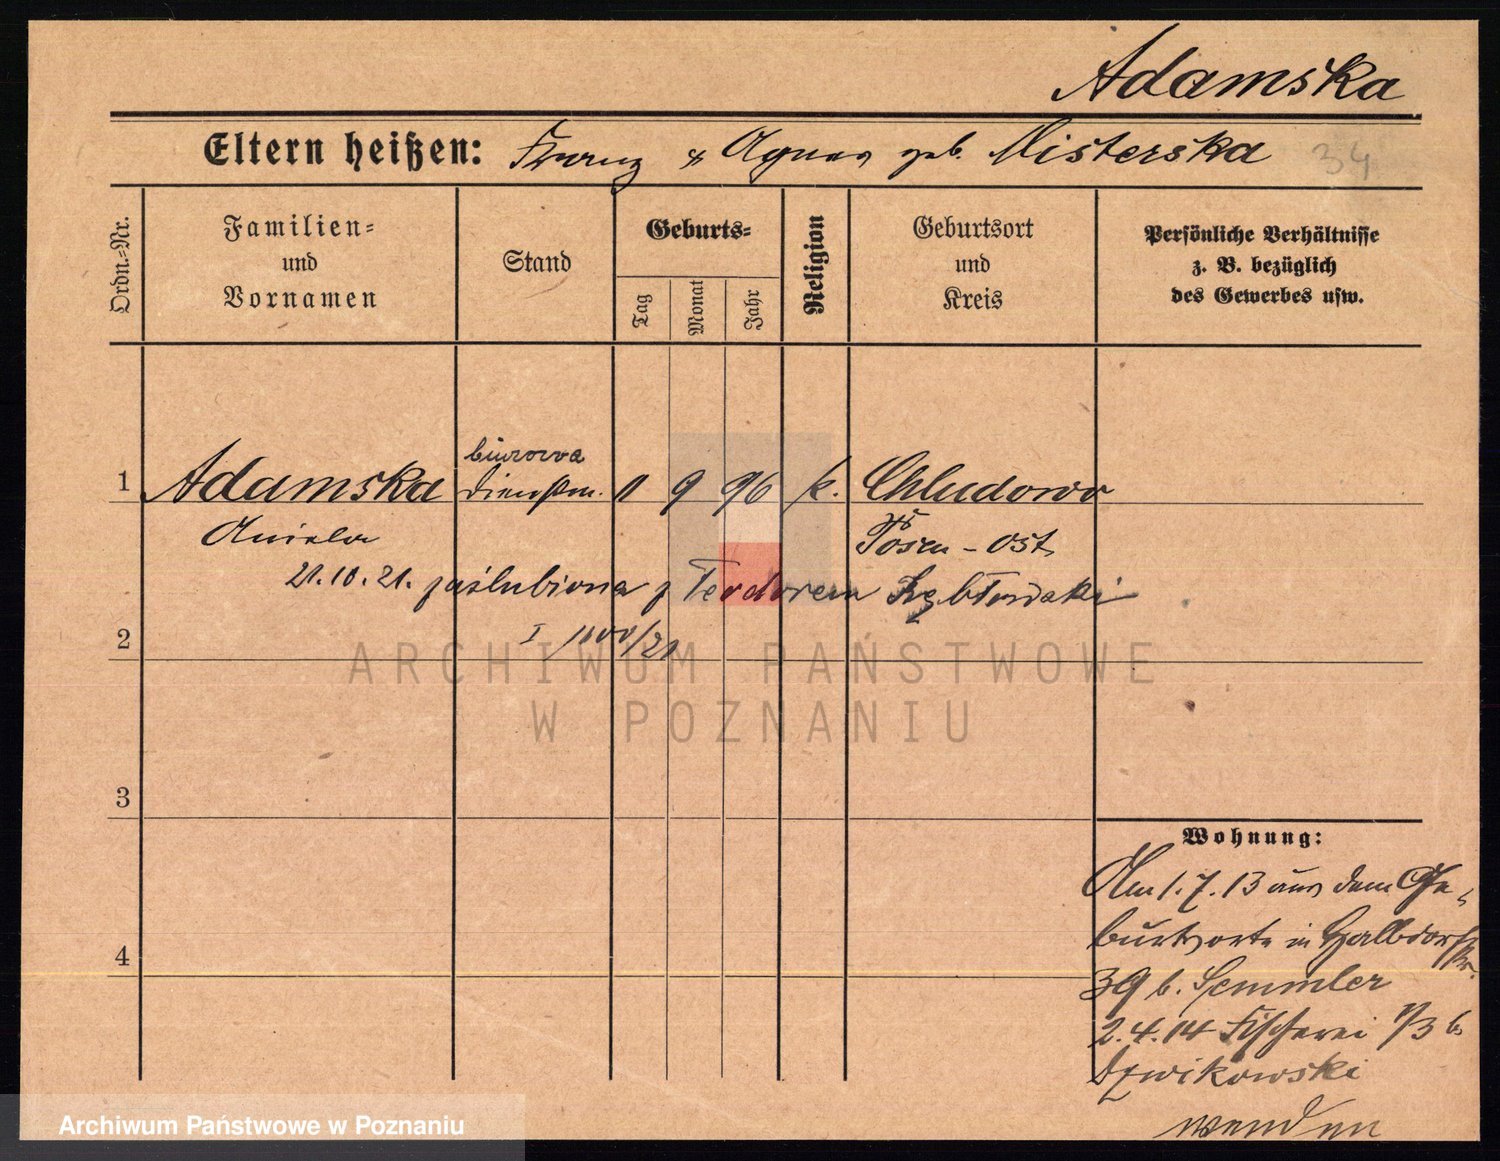 Adamska
Eltern heißen: Franz & Agnes geb. Misterska 34
Ordn.-Nr.
Familien-
und
Vornamen
Stand
Geburts-
Tag
Monat
Jahr
Religion
Geburtsort
und
Kreis
Persönliche Verhältnisse
z. B. bezüglich
des Gewerbes usw.
biurowa
1 Adamska Dienstm. 1 9 96 k. Chludowo
Aniela Posen - Ost
21.10.21. zaślubiona z Teodorem
I 1100/21
2
ARCHIWUM PAŃSTWOWE
W POZNANIU
3
Wohnung:
Am 1.7.13 aus dem Ge-
burtsorte in Halbdorfstr.
39 b. Semmler
4
2.4.14 Fischerei b.
Dzwikowski
wenden
Archiwum Państwowe w Poznaniu